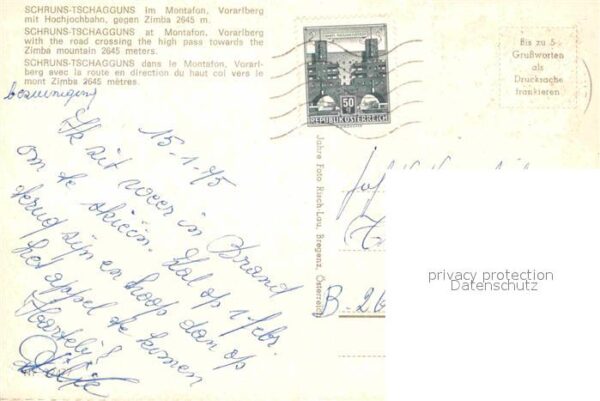 SCHRUNS-TSCHAGGUNS im Montafon, Vorarlberg
mit Hochjochbahn, gegen Zimba 2645 m.
SCHRUNS-TSCHAGGUNS at Montafon, Vorarlberg
with the road crossing the high pass towards the
Zimba mountain 2645 meters.
SCHRUNS-TSCHAGGUNS dans le Montafon, Vorarl-
berg avec la route en direction du haut col vers le
mont Zimba 2645 mètres.
50
REPUBLIK ÖSTERREICH
Bis zu 5
Grußworten
als
Drucksache
frankieren
15-1-75
Ik zit weer in Brand
om te skieën. Zal op 1 febr.
terug zijn en hoop dan op
het appel te komen
Hartelijk
Jahre Foto Risch-Lau, Bregenz, Österreich
B-26
privacy protection
Datenschutz